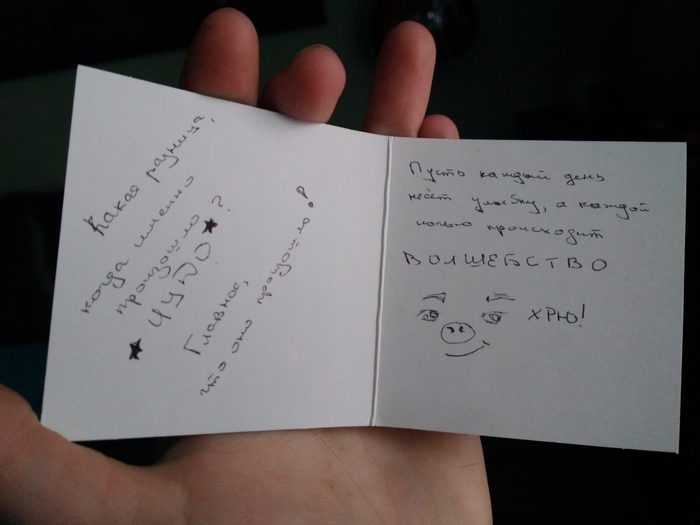 Какая разница,
когда именно
произошло
★ ЧУДО ★?
Главное,
что оно произошло!
Пусть каждый день
несёт улыбку, а каждой
ночью происходит
ВОЛШЕБСТВО
ХРЮ!